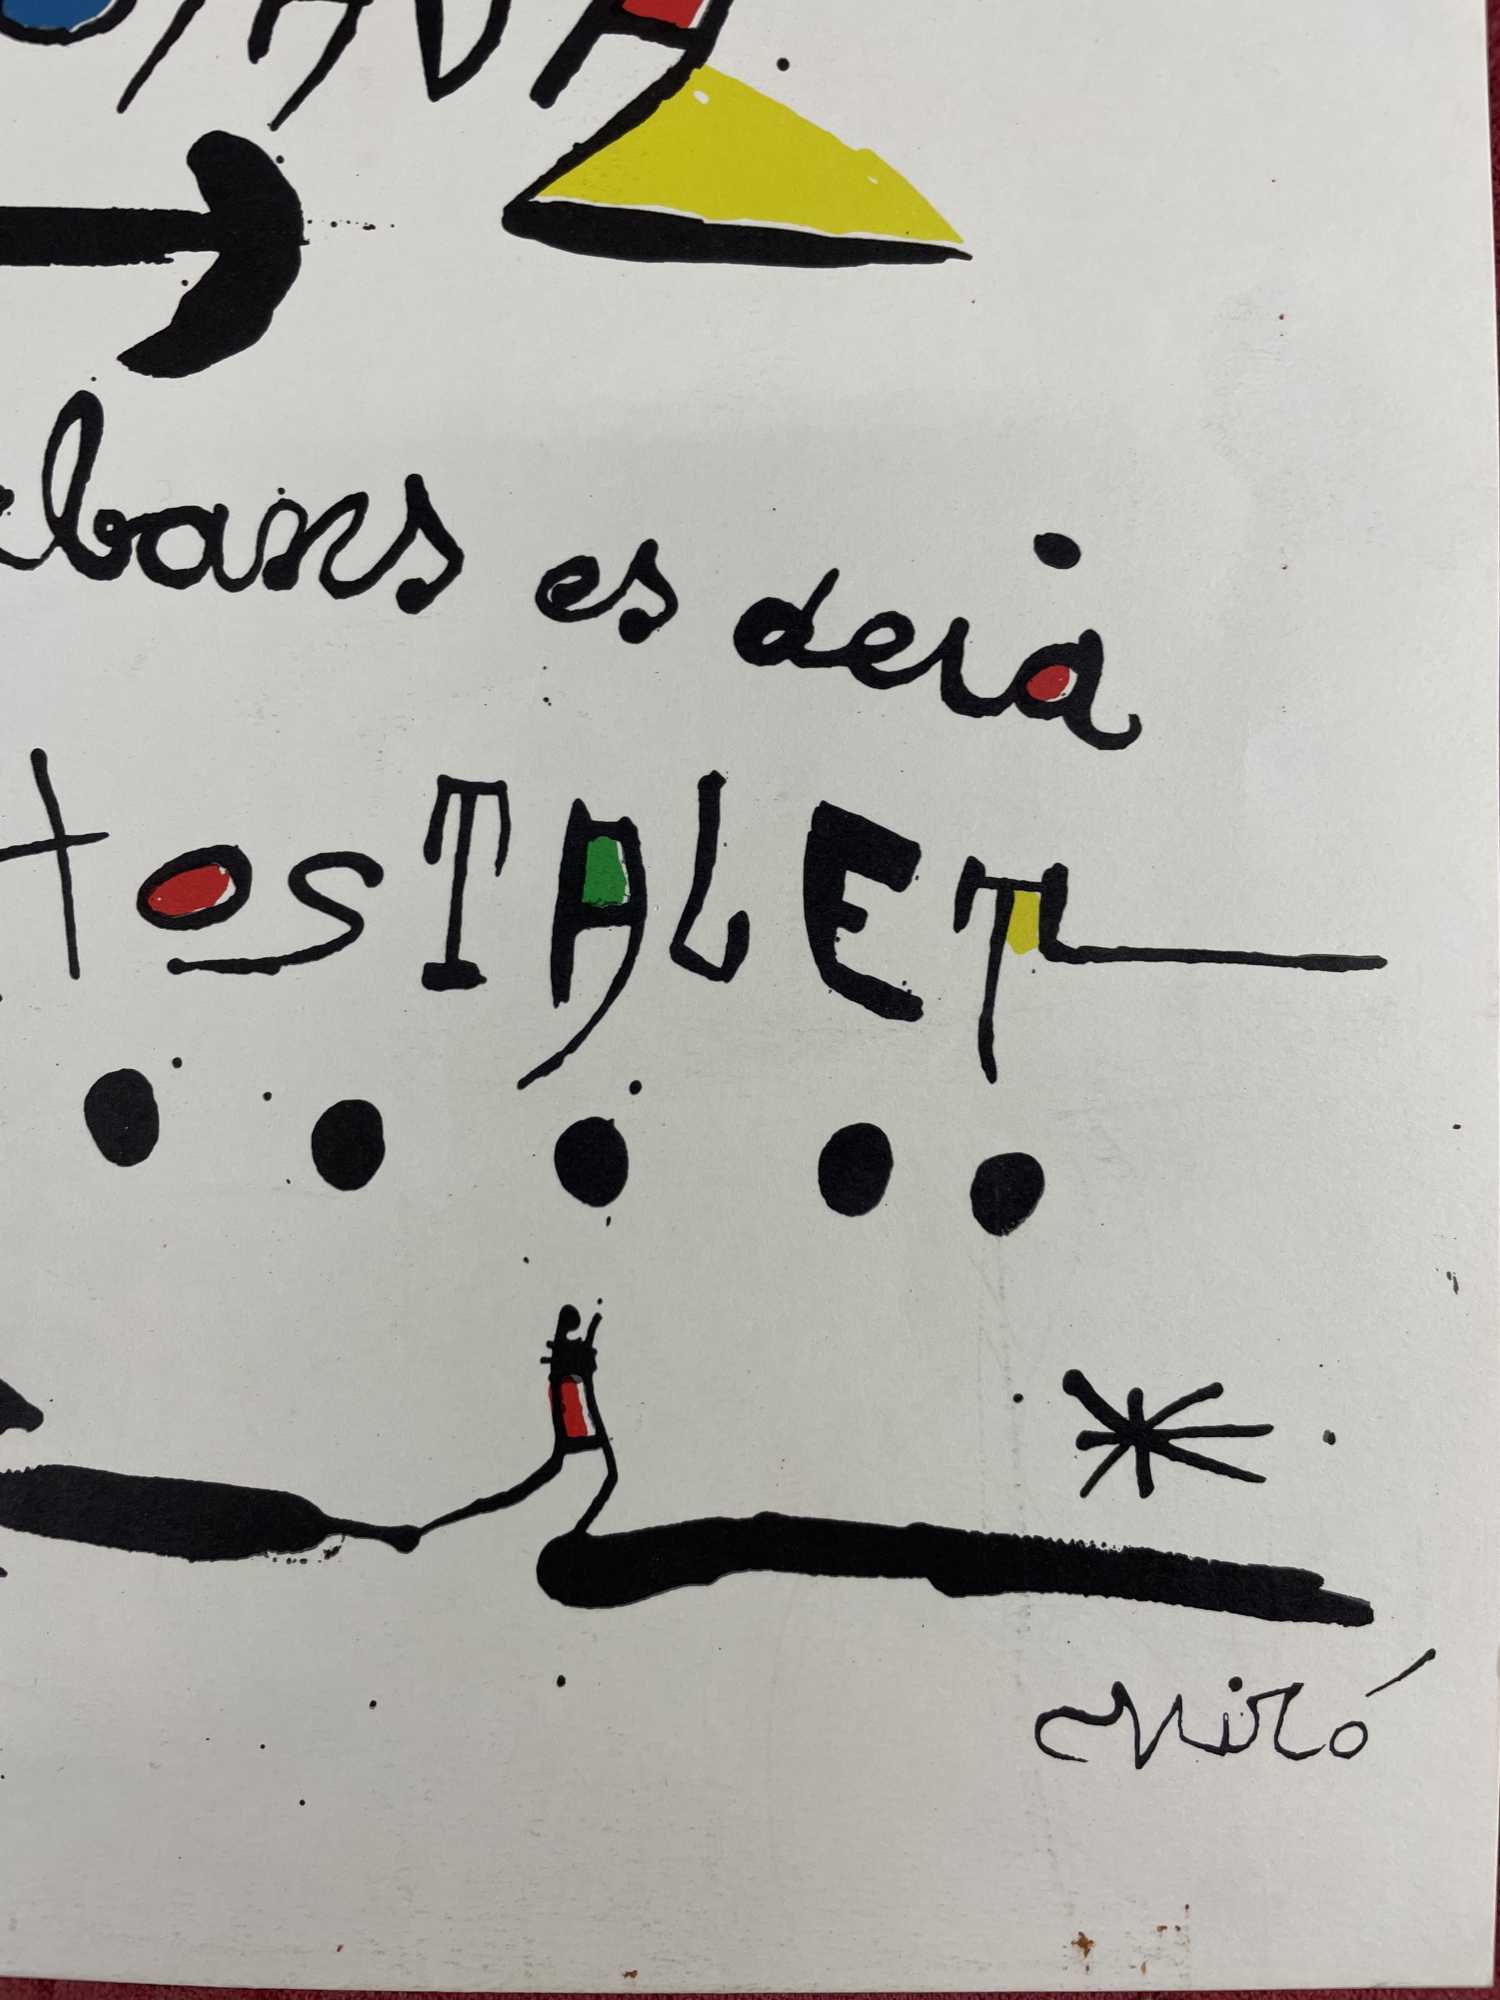 abans es deia
HOSTALET
Miró